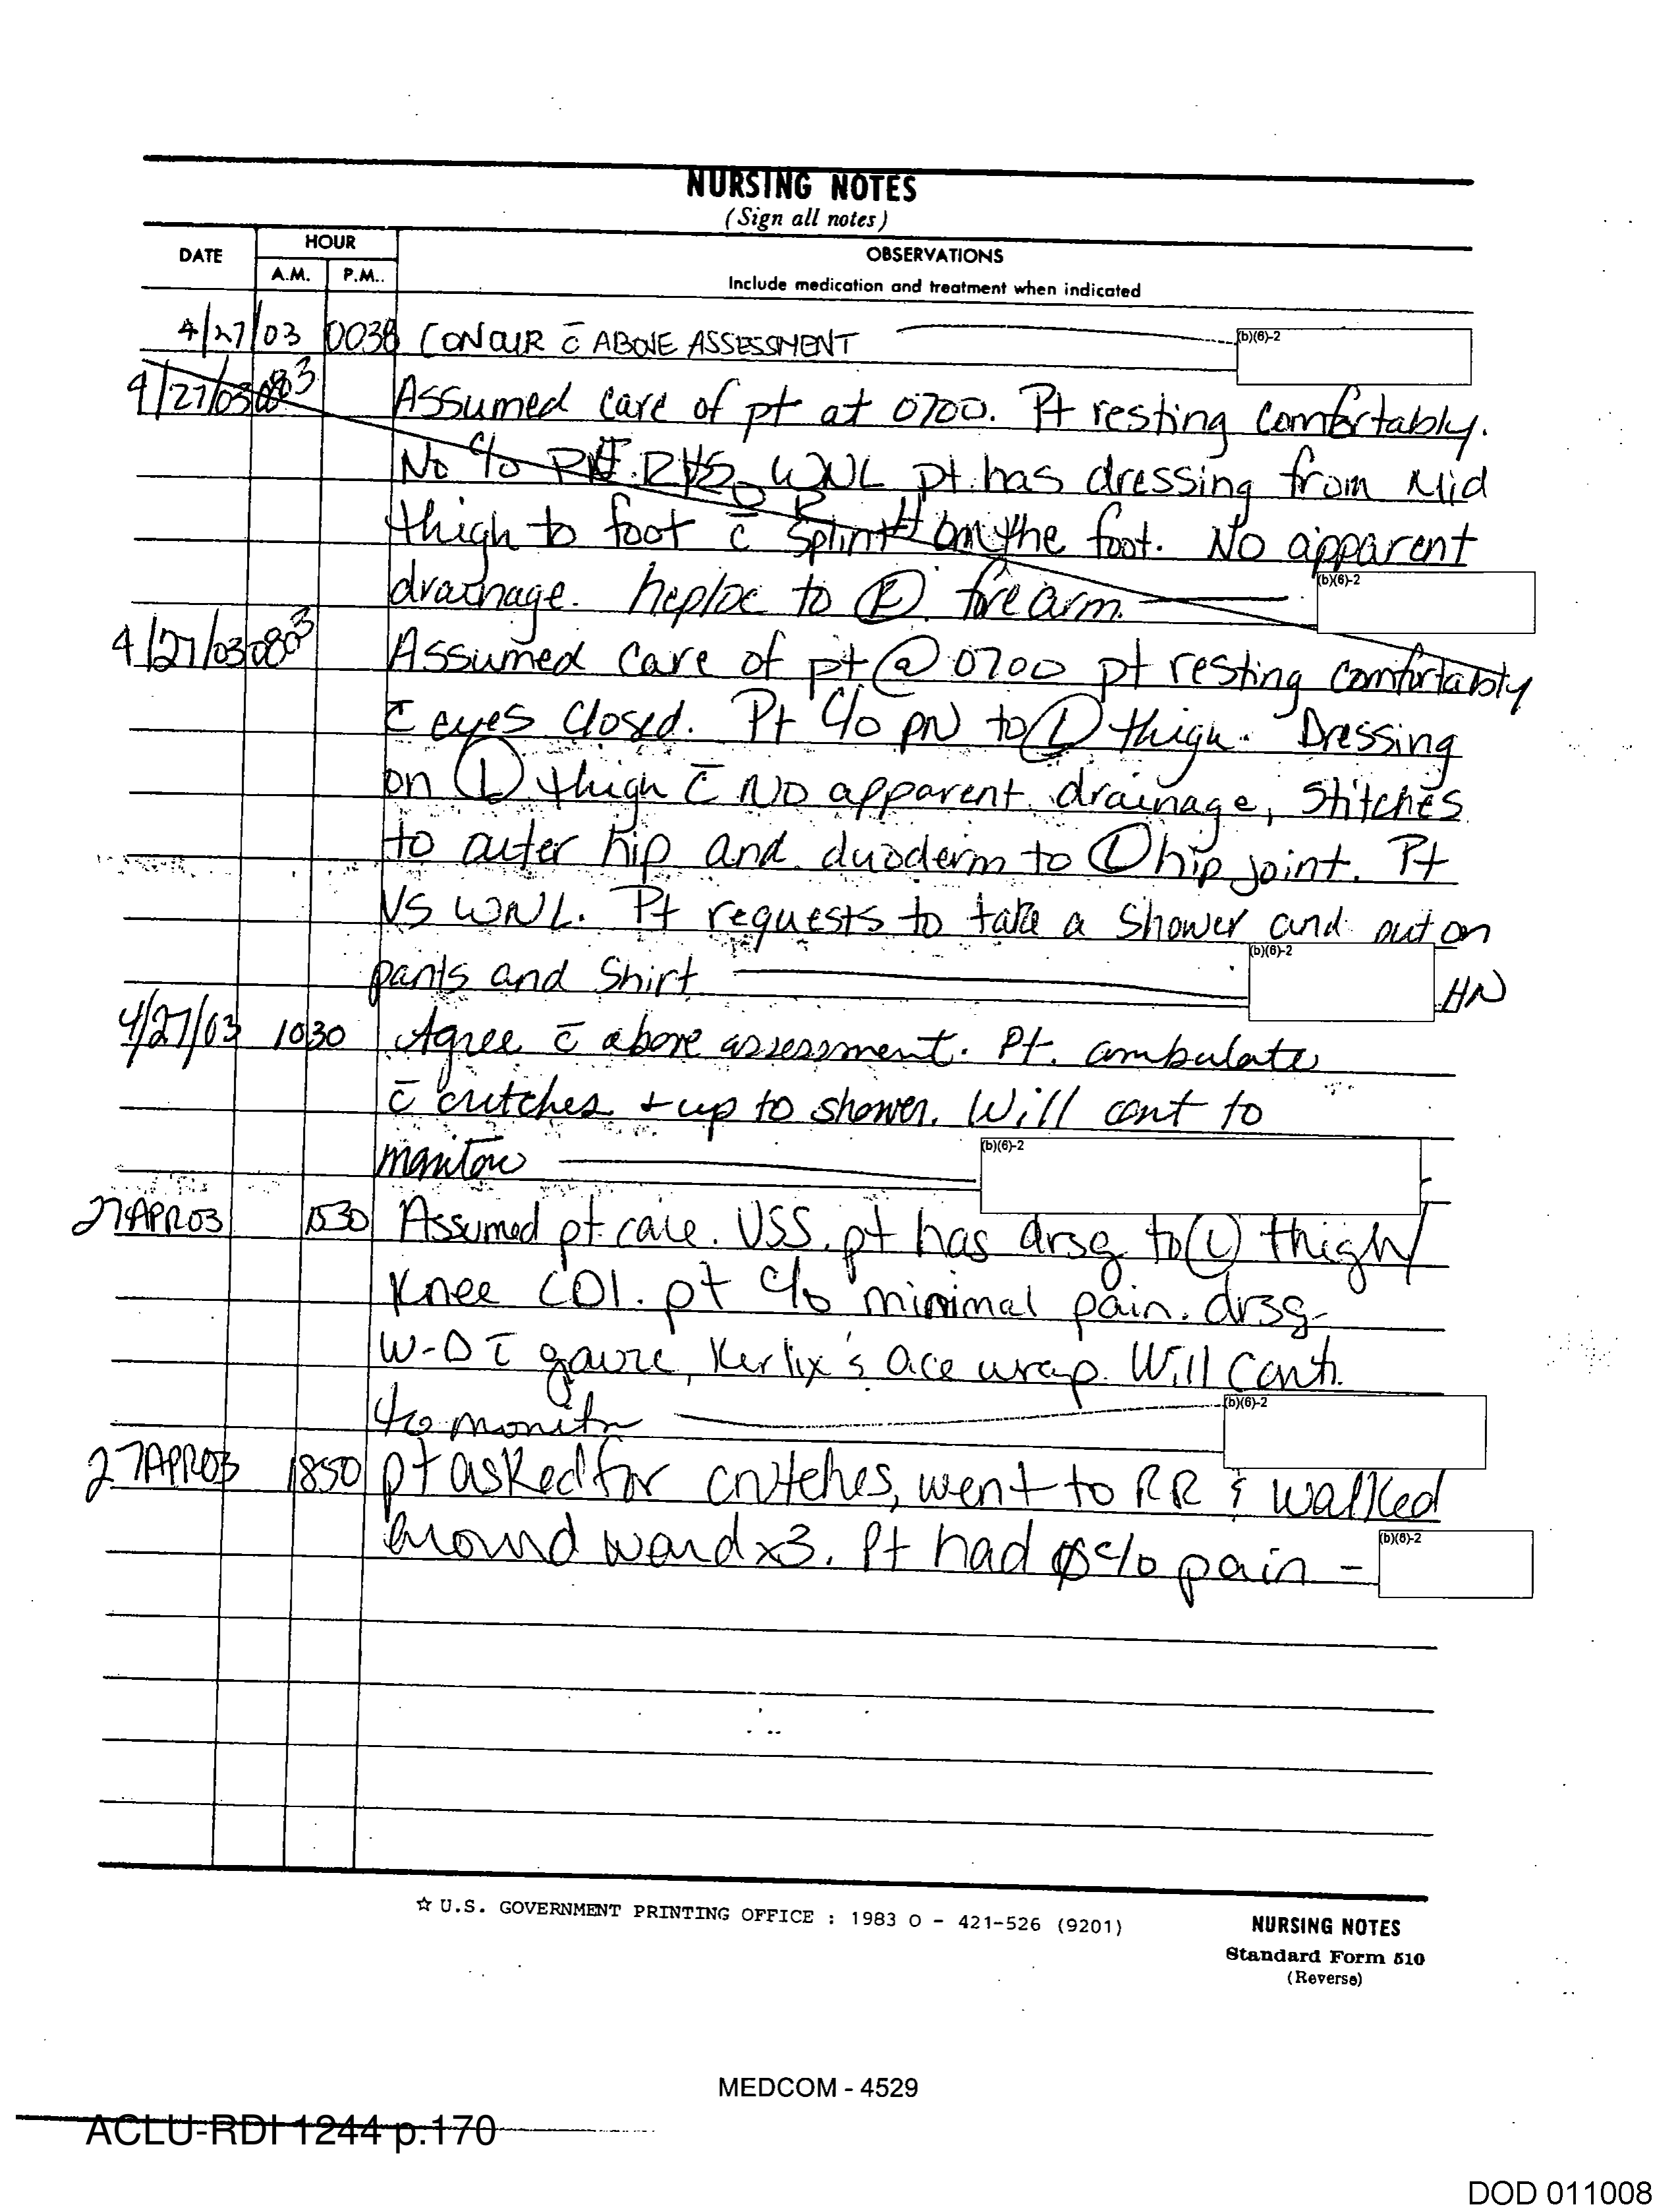 NURSING NOTES
(Sign all notes)
DATE HOUR OBSERVATIONS
A.M. P.M.. Include medication and treatment when indicated
4/27/03 0038 CONCUR c̄ ABOVE ASSESSMENT (b)(6)-2
4/27/03 0803 Assumed care of pt at 0700. Pt resting comfortably.
No c/o WNL pt has dressing from Mid
thigh to foot c̄ splint on the foot. No apparent
drainage. heploc to Ⓡ forearm (b)(6)-2
4/27/03 0803 Assumed care of pt @ 0700 pt resting comfortably
c̄ eyes closed. Pt c/o pN to Ⓛ thigh. Dressing
on Ⓛ thigh c̄ No apparent drainage, stitches
to outer hip and duoderm to Ⓛ hip joint. Pt
VS WNL. Pt requests to take a shower and put on
pants and shirt (b)(6)-2 HN
4/27/03 1030 Agree c̄ above assessment. Pt. ambulate
c̄ crutches + up to shower. Will cont to
monitor (b)(6)-2
27APR03 1530 Assumed pt care. VSS. pt has drsg to Ⓛ thigh/
Knee CDI. pt c/o minimal pain. drsg
W-D c̄ gauze, Kerlix's ace wrap. Will Cont.
to monitor (b)(6)-2
27APR03 1850 pt asked for crutches, went to RR & walked
around ward x3. Pt had ∅ c/o pain – (b)(6)-2
☆ U.S. GOVERNMENT PRINTING OFFICE : 1983 O - 421-526 (9201)
NURSING NOTES
Standard Form 510
(Reverse)
MEDCOM - 4529
ACLU-RDI 1244 p.170
DOD 011008